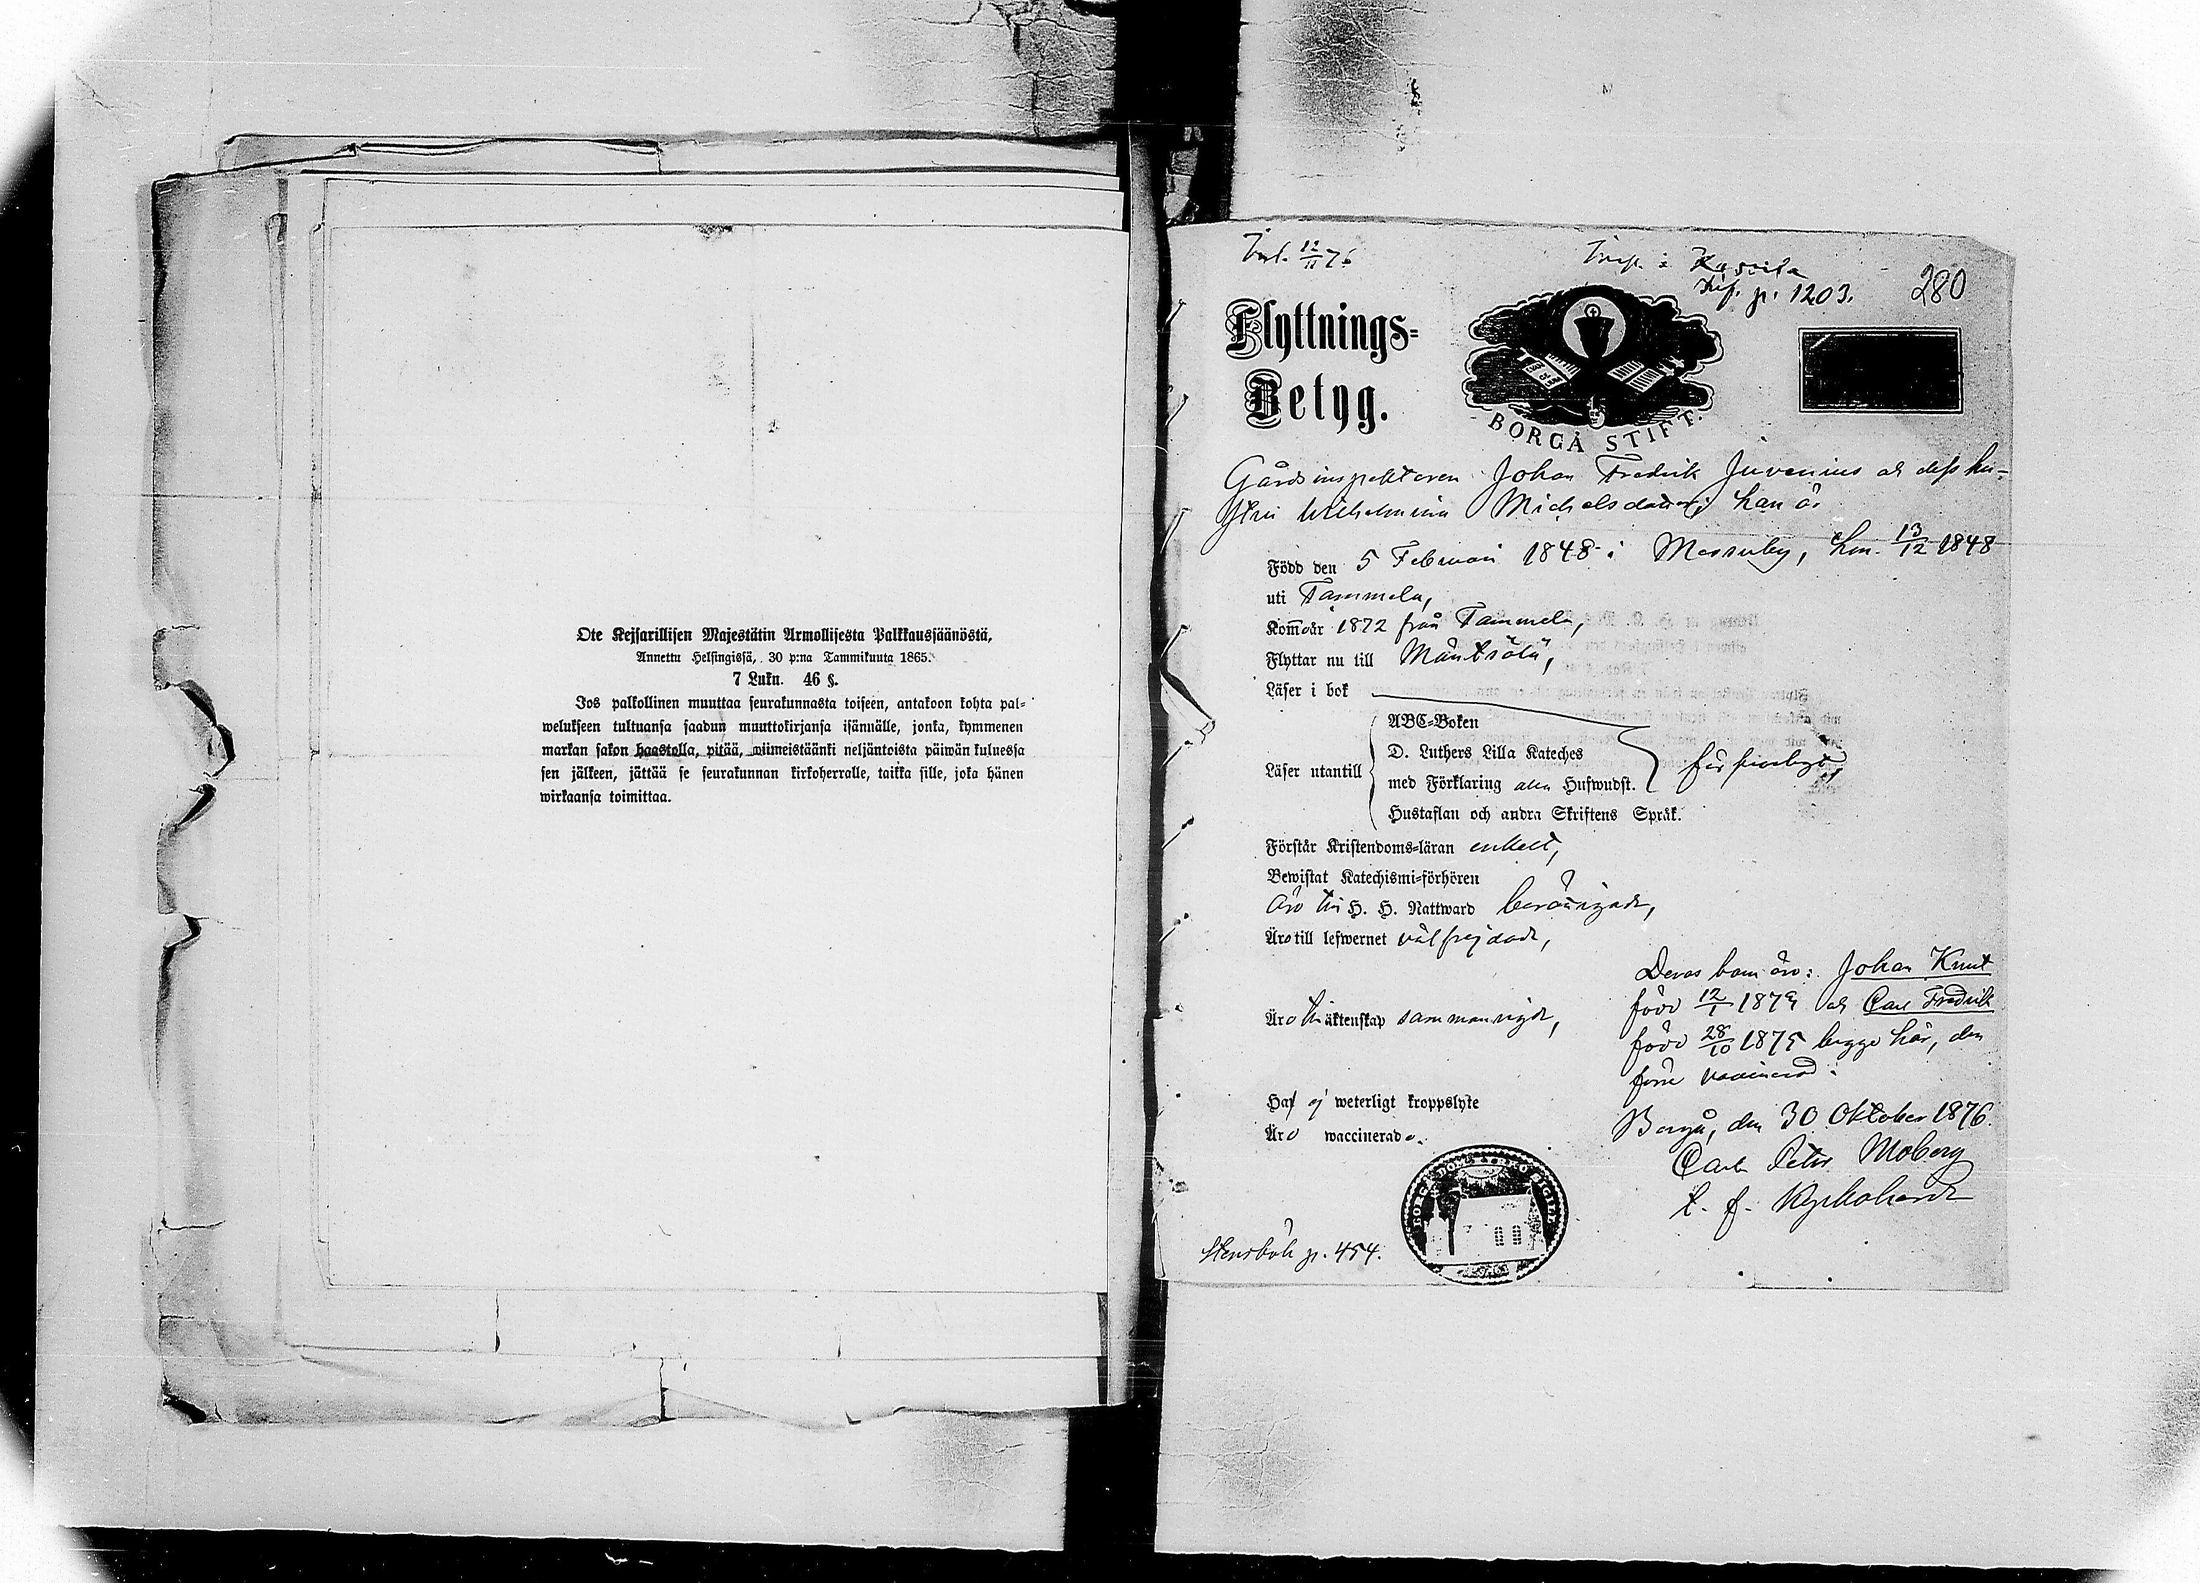 Ote Kejsarillisen Majestätin Armollisesta Palkkaussäänöstä,
Annettu Helsingissä, 30 p:na Tammikuuta 1865.
7 Lukn. 46 §.
Jos palkollinen muuttaa seurakunnasta toiseen, antakoon kohta pal-
welukseen tultuansa saadun muuttokirjansa isännälle, jonka, kymmenen
markan sakon haastolla, pitää, wiimeistäänki neljäntoista päiwän kuluessa
sen jälkeen, jättää se seurakunnan kirkoherralle, taikka sille, joka hänen
wirkaansa toimittaa.
12/11 76
280
p. 1203.
Flyttnings-
Betyg.
BORGÅ STIFT.
Gårdsinspektoren Johan Fredrik Juvenius och dess hu-
stru Wilhelmina Michelsdotter, han är
Född den 5 Februari 1848 i Messuby, hon 13/12 1848
uti Tammela,
Kom̄ o år 1872 från Tammela,
Flyttar nu till Mäntsälä,
Läser i bok
ABC-Boken
D. Luthers Lilla Kateches
Läser utantill
med Förklaring alla Hufwudst.
Hustaflan och andra Skriftens Språk.
försvarligt,
Förstår Kristendoms-läran enkelt,
Bewistat Katechismi-förhören
Äro till H. H. Nattward berättigade,
Äro till lefwernet välfrejdade,
Äro till äktenskap sammanvigde,
Haf ej weterligt kroppslyte
Äro waccinerade.
Deras barn äro: Johan Knut
född 12/1 1874 och Carl Fredrik
född 28/10 1875 begge här, den
förre vaccinerad.
Borgå, den 30 Oktober 1876.
Carl Peter Moberg
t. f. Kyrkoherde
Stensböle p. 454.